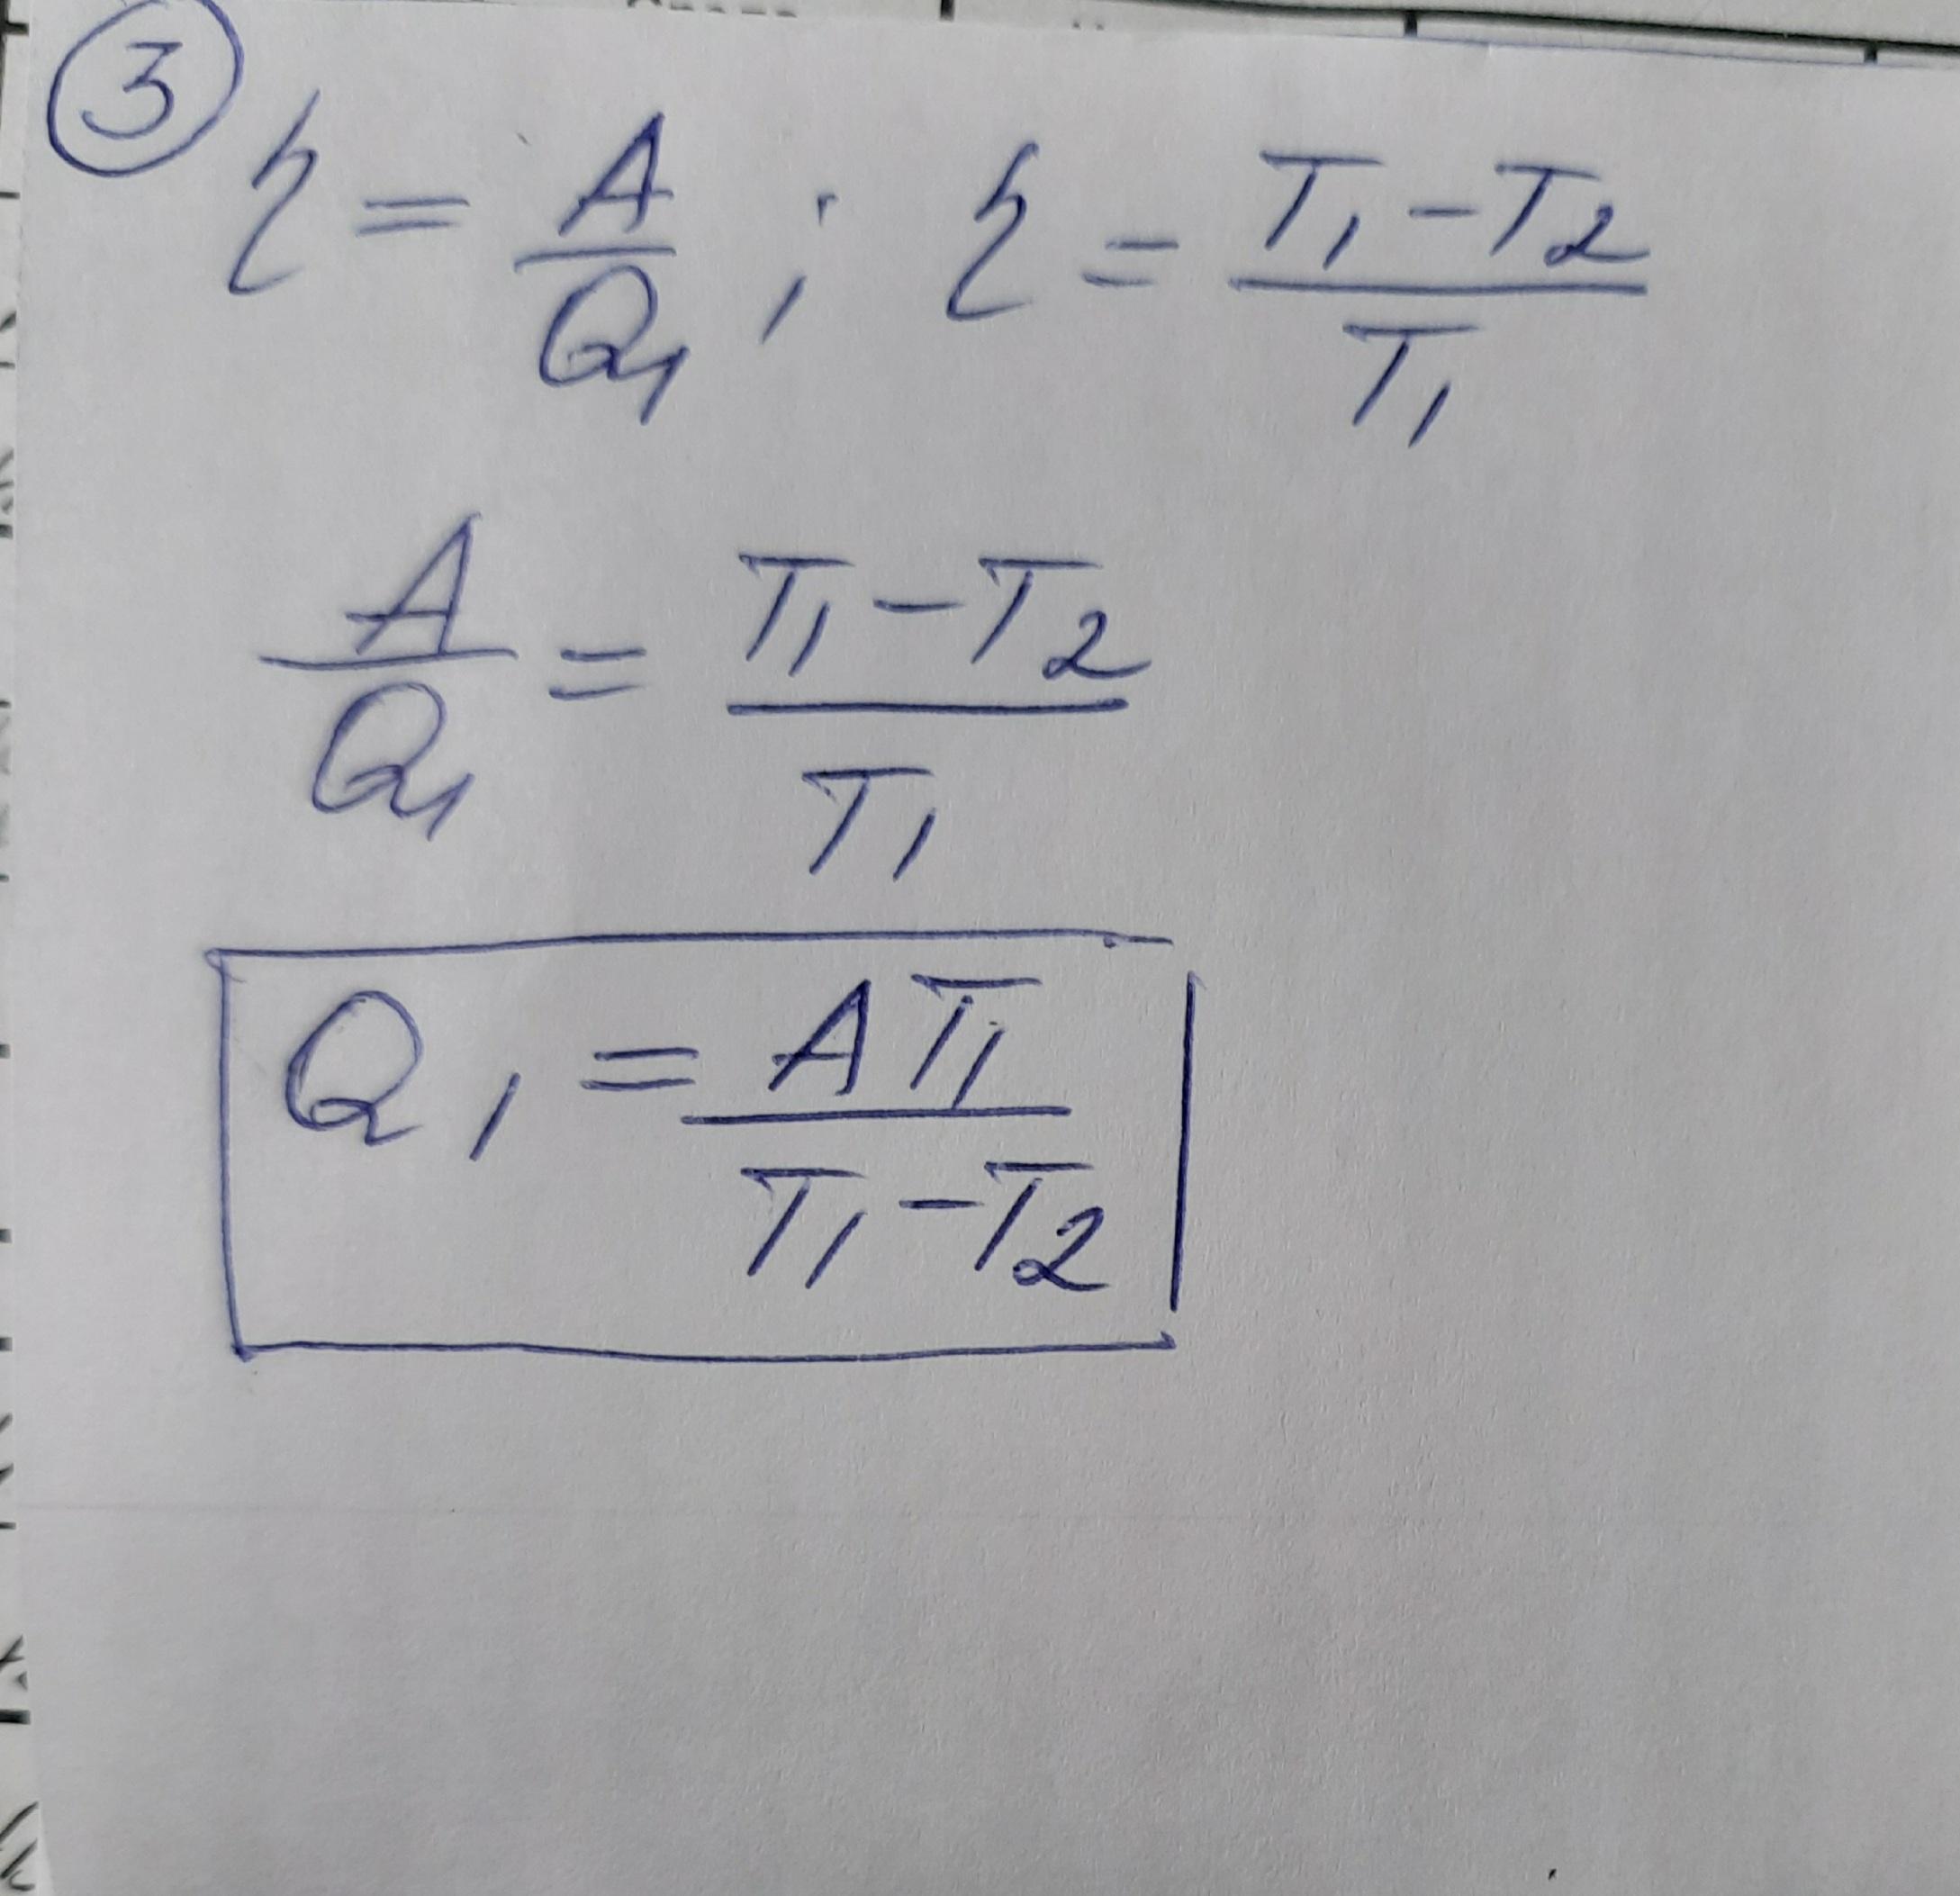 ③
η = A/Q₁ ; η = (T₁ − T₂)/T₁
A/Q₁ = (T₁ − T₂)/T₁
Q₁ = AT₁/(T₁ − T₂)